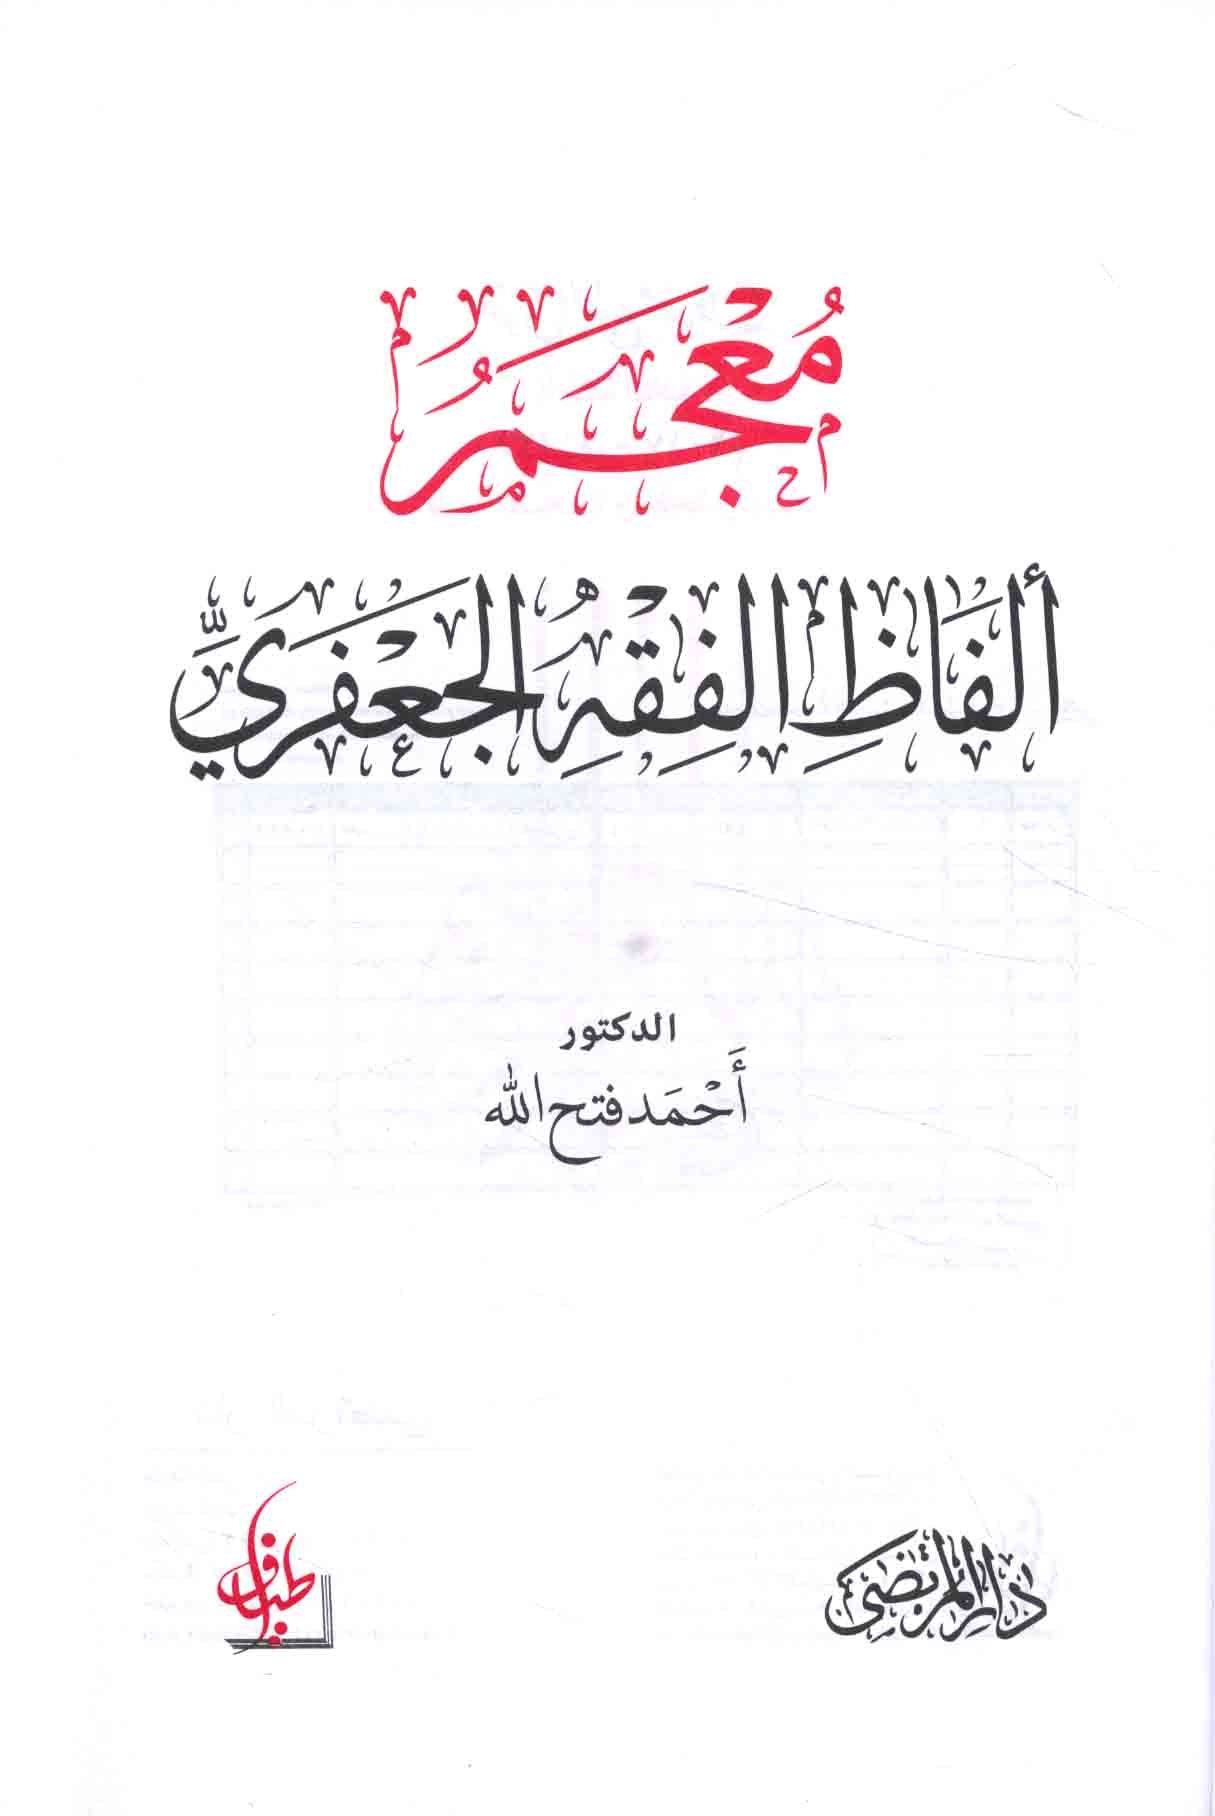 مُعْجَمُ
ألفَاظِ الفِقْهِ الجَعْفَرِيِّ
الدكتور
أَحْمَد فتح الله
دار المرتضى